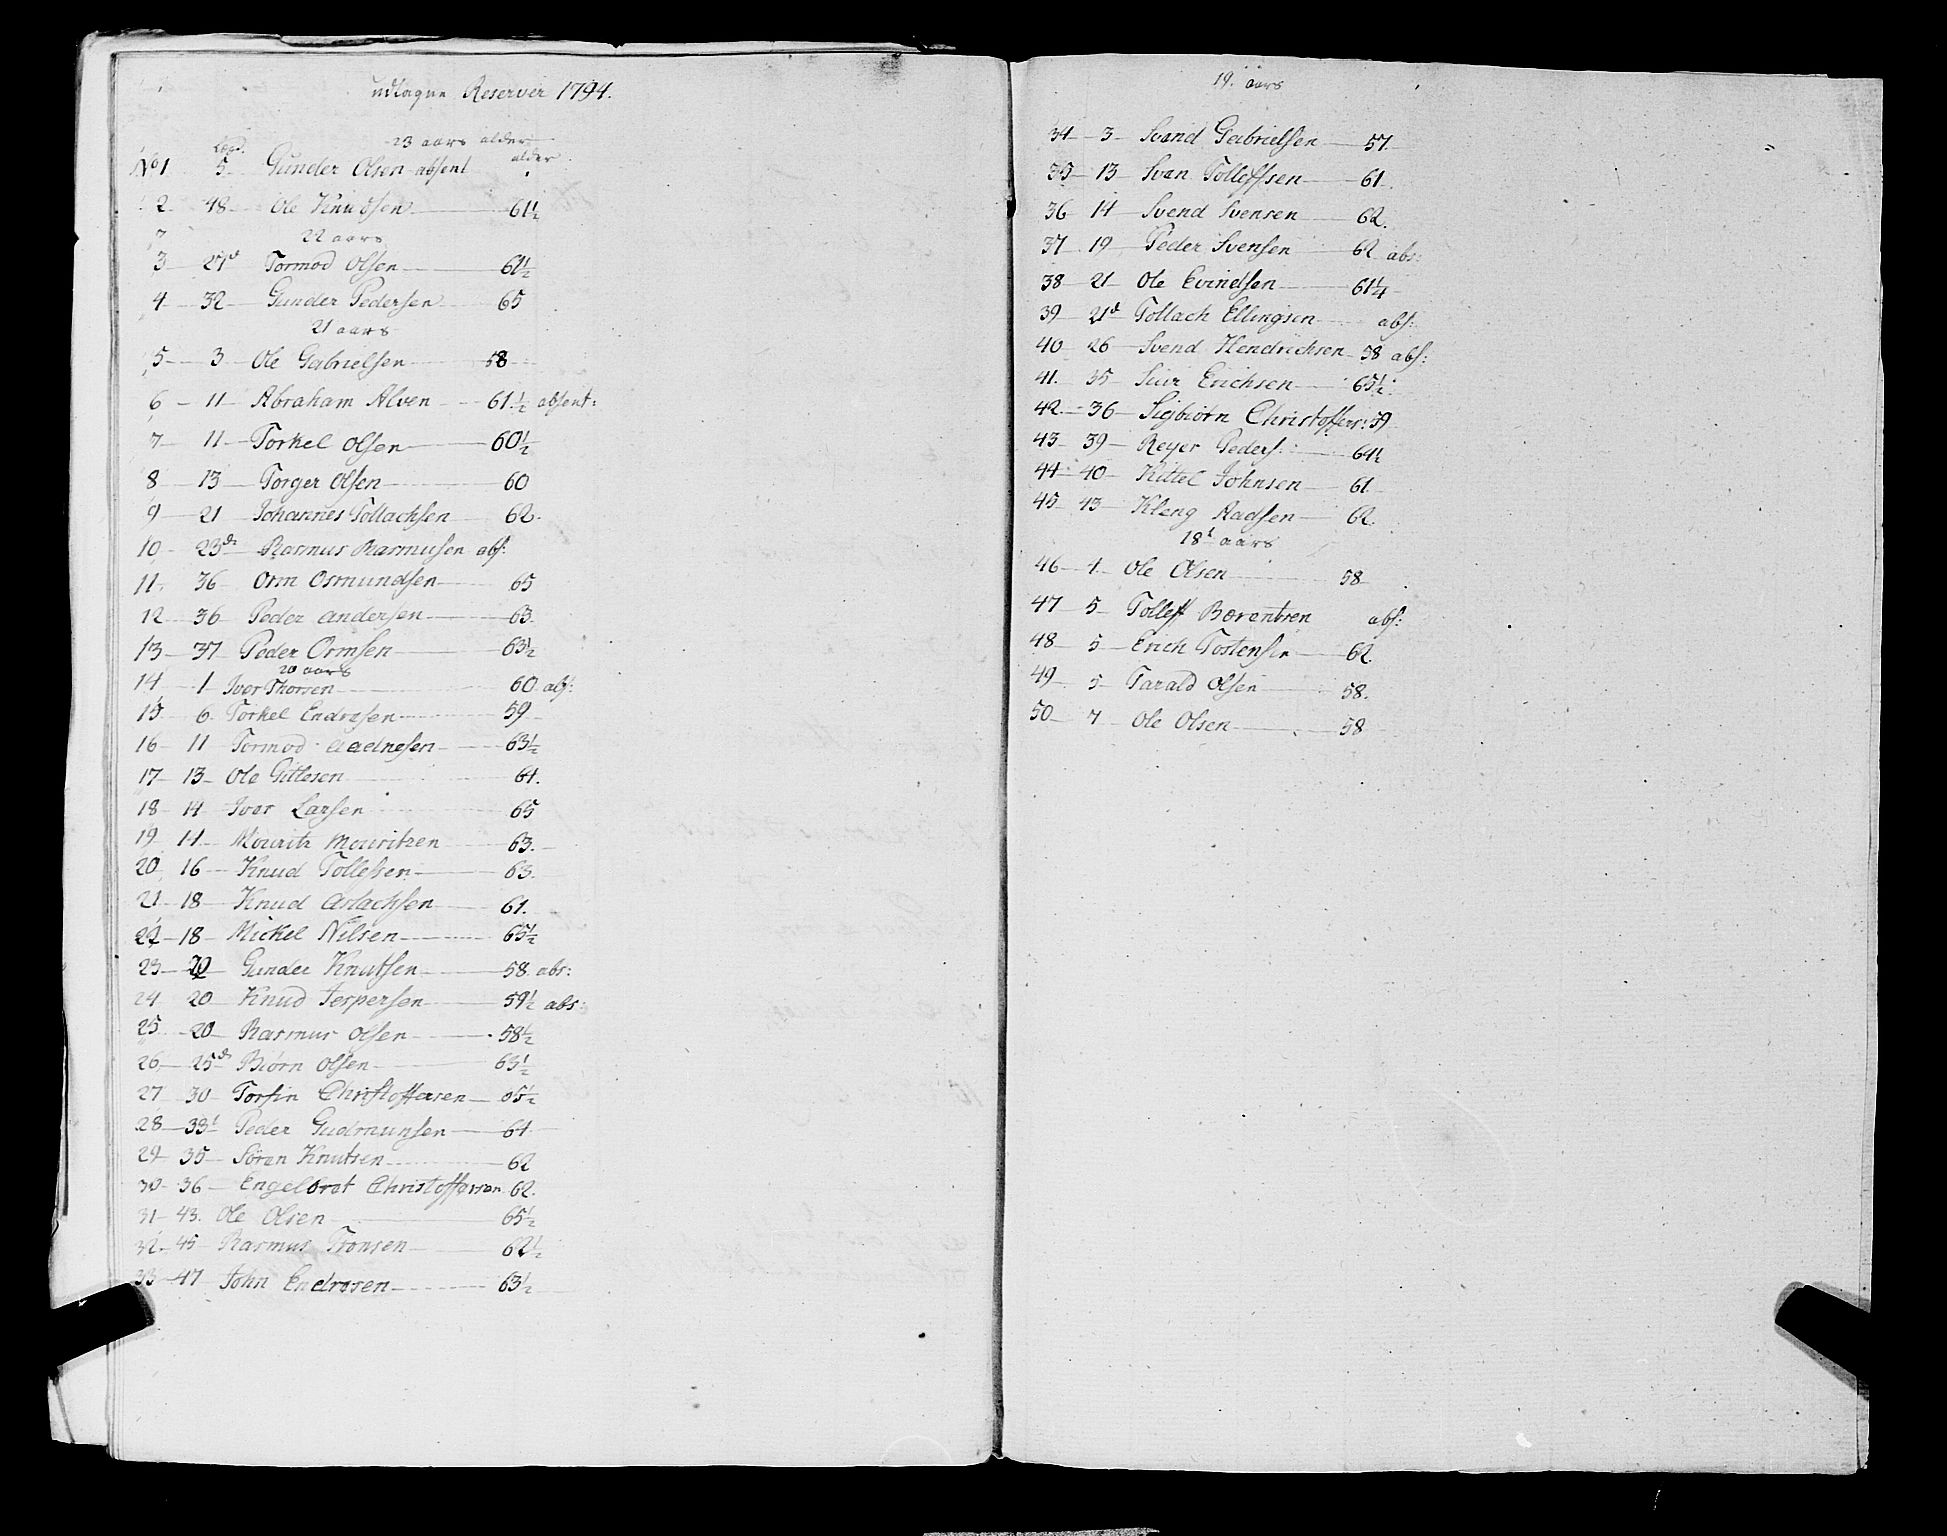 udtagne Reserver 1794.
23 aars alder
Lægd. alder
No 1 5 Gunder Olsen absent
2 48 Ole Knudsen 61½
22 aars
3 27d Tormod Olsen 61½
4 32 Gunder Pedersen 65
21 aars
5 3 Ole Gabrielsen 58
6 11 Abraham Alven 61½ absent:
7 11 Torkel Olsen 60½
8 13 Torger Olsen 60
9 21 Johannes Tollachsen 62
10 23d Rasmus Rasmusen abs:
11 36 Orm Osmundsen 65
12 36 Peder Andersen 63
13 37 Peder Ormsen 63½
20 aars
14 1 Iver Thorsen 60 abs:
15 6 Torkel Endresen 59
16 11 Tormod Aadnesen 63½
17 13 Ole Gitlesen 61.
18 14 Iver Larsen 65
19 14 Mouritz Mouritzen 63.
20 16 Knud Tollefsen 63.
21 18 Knud Aslachsen 61.
22 18 Mickel Nilsen 65½
23 20 Gunder Knutsen 58 abs:
24 20 Knud Jespersen 59½ abs:
25 20 Rasmus Olsen 58½
26 25d Biørn Olsen 63½
27 30 Torfin Christoffersen 65½
28 33d Peder Gudmunsen 61
29 35 Søren Knutsen 62
30 36 Engelbret Christoffersen 62.
31 43. Ole Olsen 65½
32 45 Rasmus Tronsen 62½
33 47 John Endresen 63½
19. aars
34 3 Svend Gabrielsen 57.
35 13 Sven Tollefsen 61
36 14 Svend Svensen 62.
37 19 Peder Svensen 62 abs:
38 21 Ole Evindsen 61¼
39 21d Tollach Ellingsen abs:
40 26 Svend Hendrichsen 58 abs:
41. 35 Siur Erichsen 65½
42 36 Sigbiørn Christoffers: 59
43 39 Reyer Peders: 61½
44 40 Kittel Johnsen 61
45 43 Kleng Aadsen 62.
18 aars
46 1 Ole Olsen 58
47 5 Tollef Berentsen abs:
48 5 Erich Tostensen 62
49 5 Tarald Olsen 58.
50 7 Ole Olsen 58